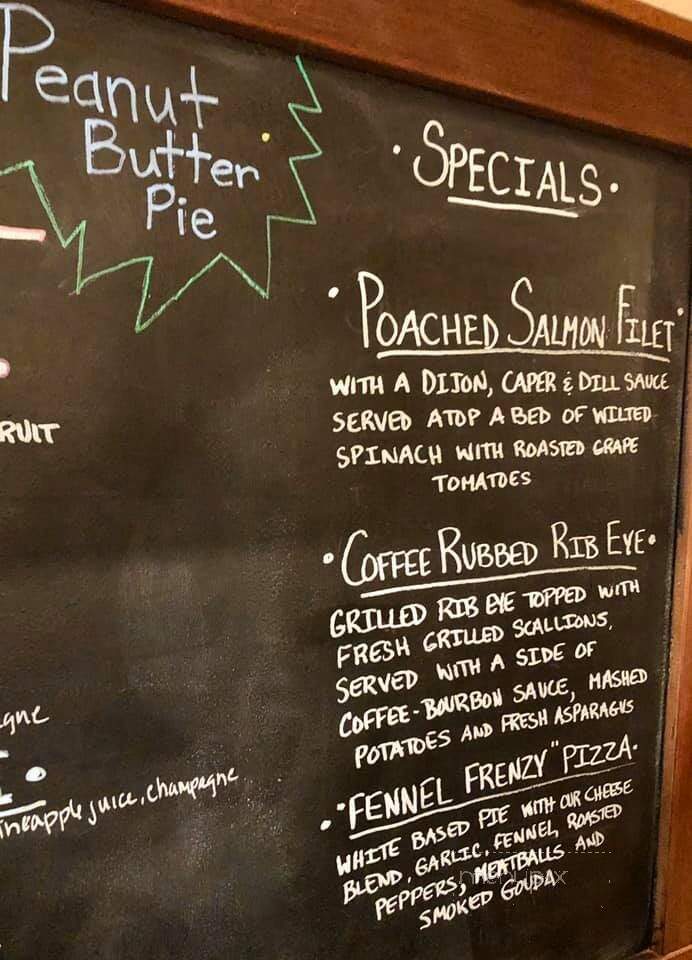 Peanut
Butter
Pie
RUIT
agne
ineapple juice, champagne
• SPECIALS •
• POACHED SALMON FILET •
WITH A DIJON, CAPER & DILL SAUCE
SERVED ATOP A BED OF WILTED
SPINACH WITH ROASTED GRAPE
TOMATOES
• COFFEE RUBBED RIB EYE •
GRILLED RIB EYE TOPPED WITH
FRESH GRILLED SCALLIONS,
SERVED WITH A SIDE OF
COFFEE-BOURBON SAUCE, MASHED
POTATOES AND FRESH ASPARAGUS
• "FENNEL FRENZY" PIZZA •
WHITE BASED PIE WITH OUR CHEESE
BLEND, GARLIC, FENNEL, ROASTED
PEPPERS, MEATBALLS AND
SMOKED GOUDA